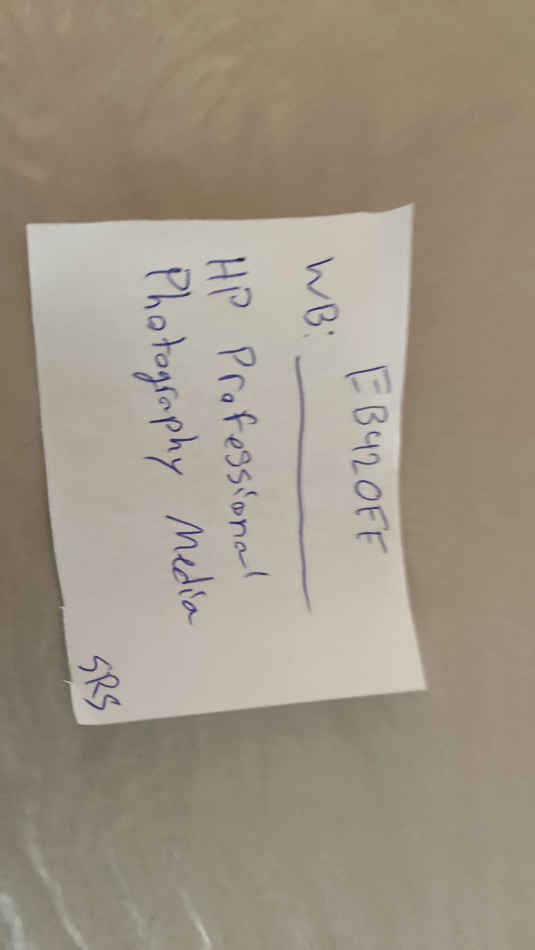 EB420FF
WB:
HP Professional
Photography Media
SRS